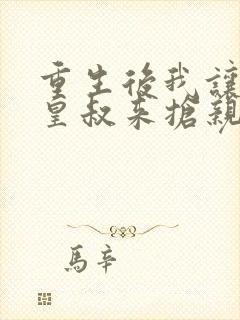 重生後我讓
皇叔來搶親
馬辛